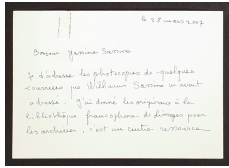 le 28 mars 2007
Bonjour Yasmina Sassine
Je t'adresse les photocopies de quelques
courriers que Williams Sassine m'avait
adressé. J'ai donné les originaux à la
bibliothèque francophone de Limoges pour
les archives, c'est un centre ressource